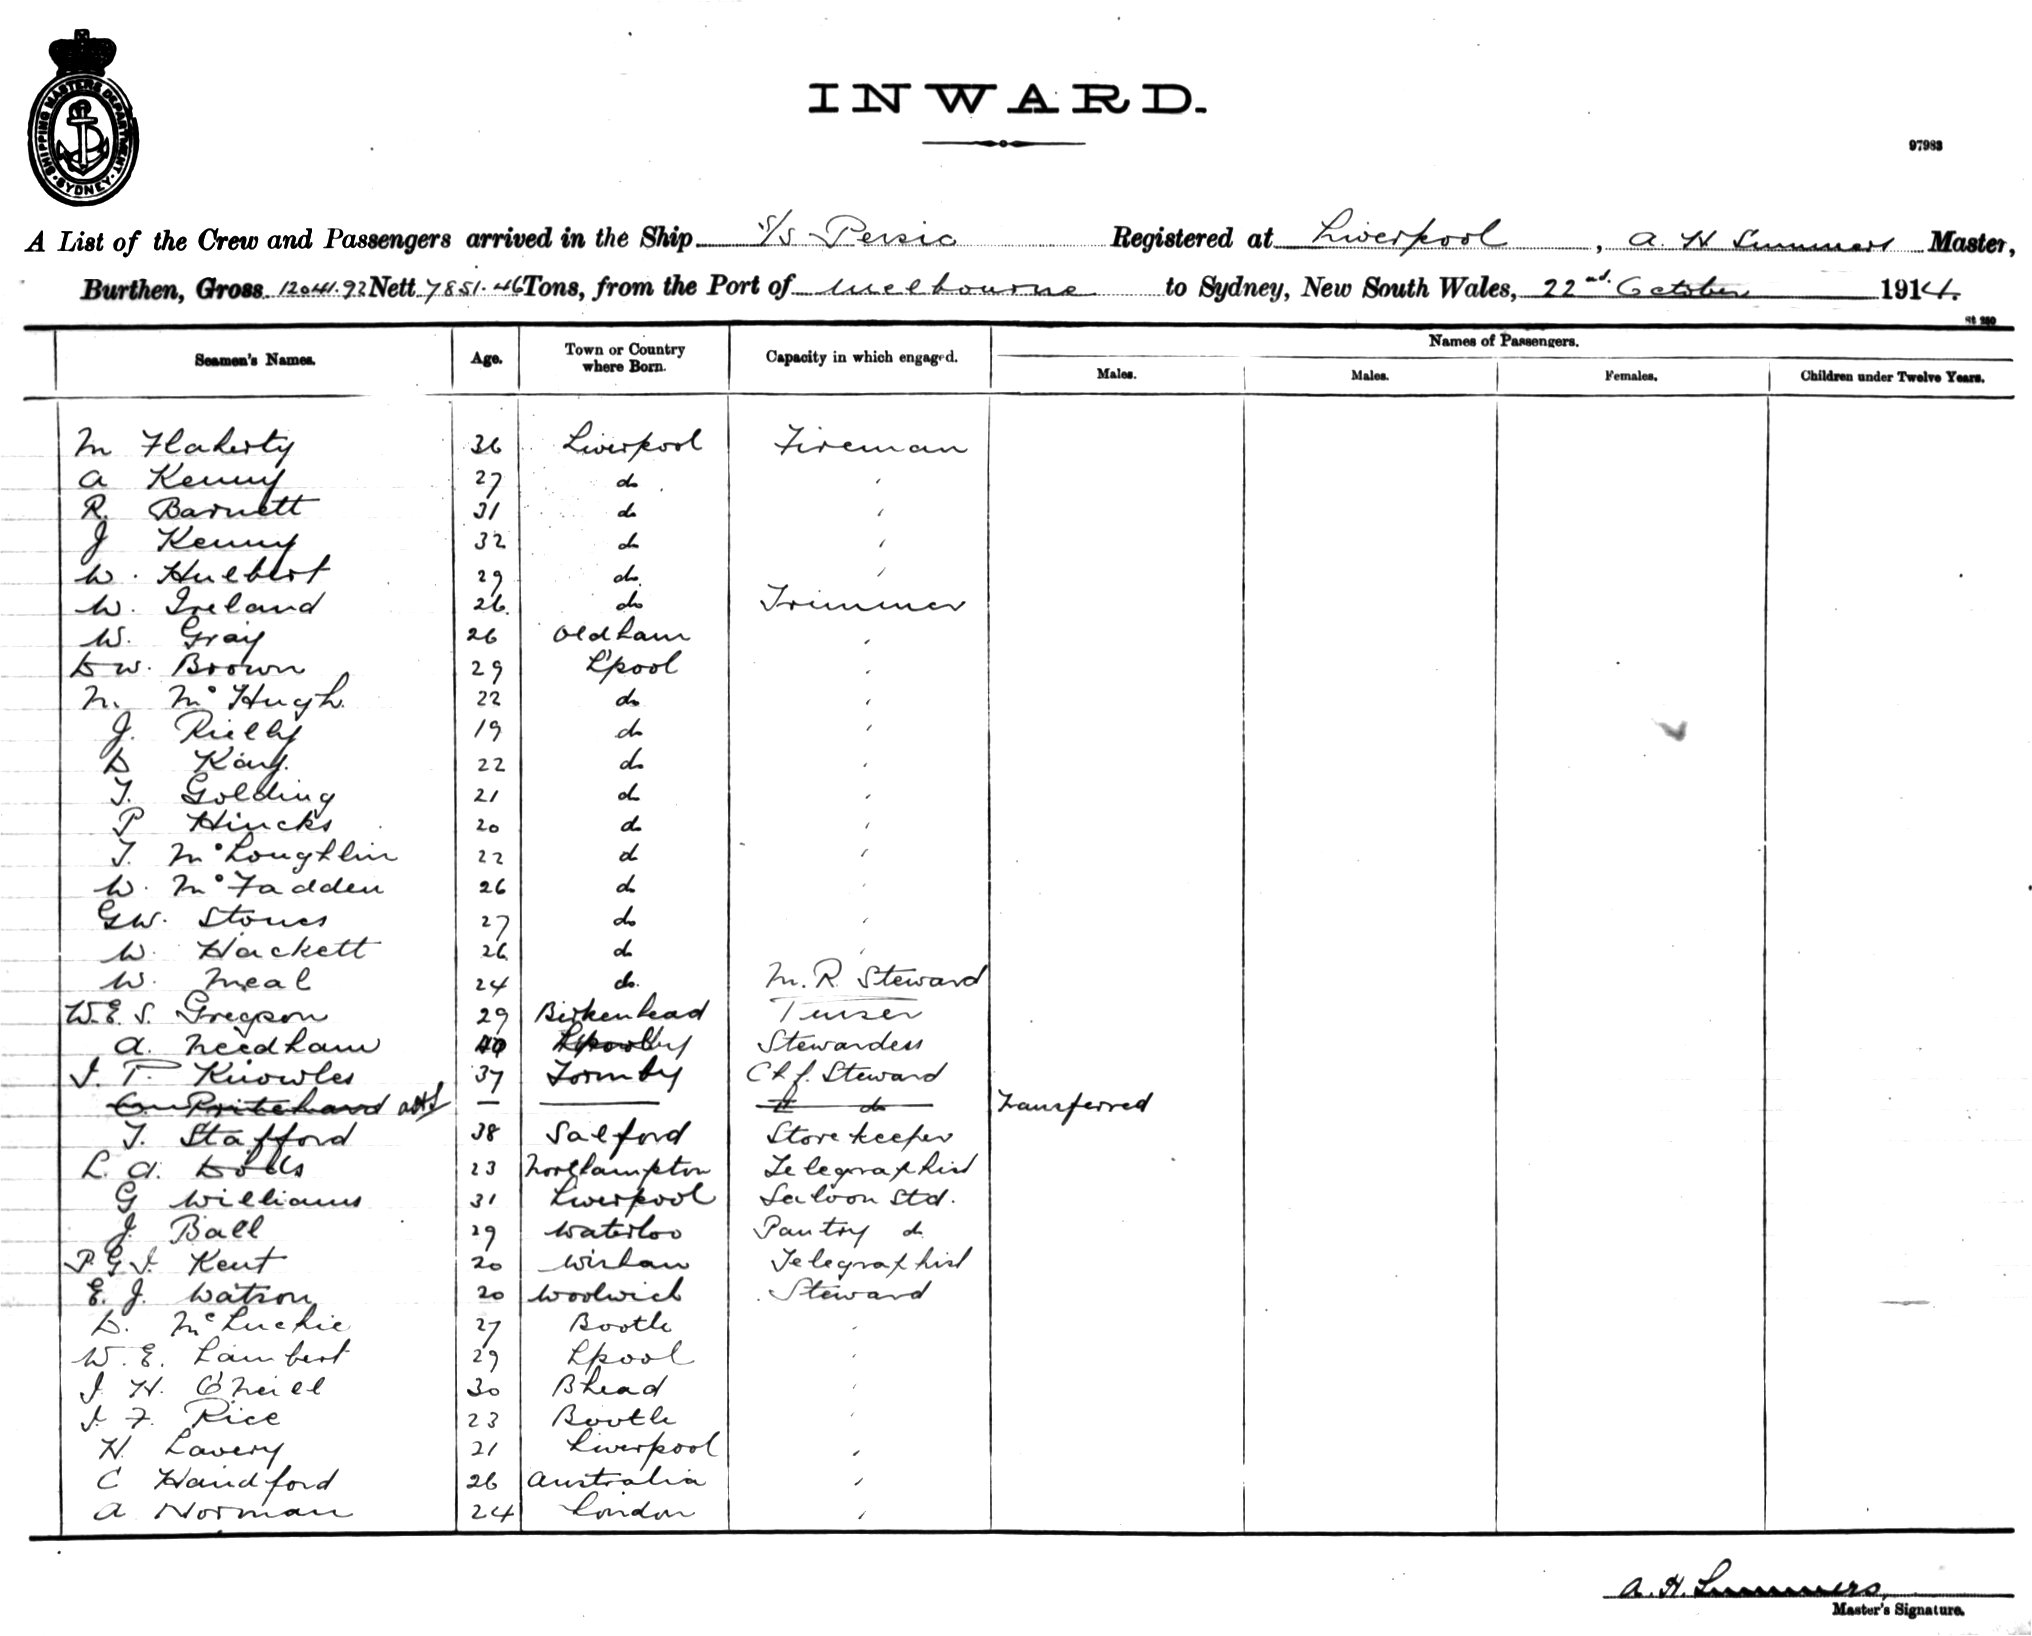 SHIPPING MASTERS DEPARTMENT. SYDNEY.
INWARD.
97983
A List of the Crew and Passengers arrived in the Ship s/s Persic Registered at Liverpool, A. H. Summers Master,
Burthen, Gross 12041.92 Nett 7851.46 Tons, from the Port of Melbourne to Sydney, New South Wales, 22nd October 1914.
Names of Passengers.
Seamen's Names. Age. Town or Country where Born. Capacity in which engaged. Males. Males. Females. Children under Twelve Years.
M Flaherty 36 Liverpool Fireman
A Kenny 27 do "
R. Barnett 31 do "
J Kenny 32 do "
W. Hulbert 29 do "
W. Ireland 26 do Trimmer
W. Gray 26 Oldham "
D W. Brown 29 L'pool "
N. McHugh 22 do "
J. Rielly 19 do "
D Kay. 22 do "
T. Golding 21 do "
P Hincks 20 do "
T. McLoughlin 22 do "
W. McFadden 26 do "
G W. Stones 27 do "
W. Hackett 26 do "
W. Meal 24 do. M. R. Steward
W. E. S. Gregson 29 Birkenhead Purser
A. Needham 40 Stewardess
J. P. Knowles 37 Formby Chf. Steward
Pritchard — do Transferred
T. Stafford 38 Salford Storekeeper
L. A. Dobbs 23 Northampton Telegraphist
G Williams 31 Liverpool Saloon Std.
J. Ball 29 Waterloo Pantry do
P. G. J. Kent 20 Telegraphist
E. J. Watson 20 Woolwich Steward
D. McLuckie 27 Bootle "
W. E. Lambert 29 Lpool "
J. H. O'Neill 30 Bhead "
J. F. Rice 23 Bootle "
H. Lavery 21 Liverpool "
C Handford 26 Australia "
A Norman 24 London "
A. H. Summers,
Master's Signature.